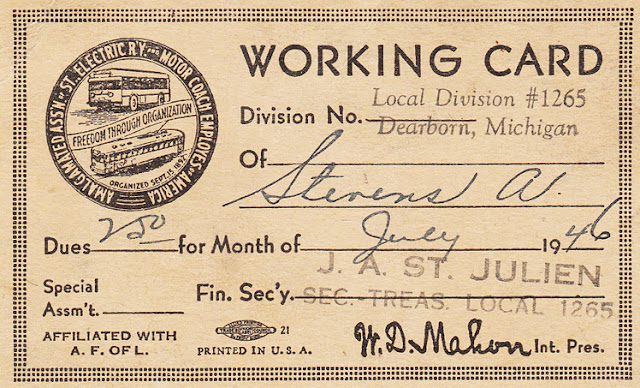 AMALGAMATED ASS'N. OF ST. ELECTRIC R.Y. AND MOTOR COACH EMPLOYES OF AMERICA
FREEDOM THROUGH ORGANIZATION
ORGANIZED SEPT. 15 1892
WORKING CARD
Division No. Local Division #1265
Dearborn, Michigan
Of Stevens
Dues 2 50 for Month of July 1946
J. A. ST. JULIEN
Special
Assm't. Fin. Sec'y. SEC.-TREAS. LOCAL 1265
AFFILIATED WITH
A. F. OF L.
21
PRINTED IN U.S.A.
W. D. Mahon Int. Pres.